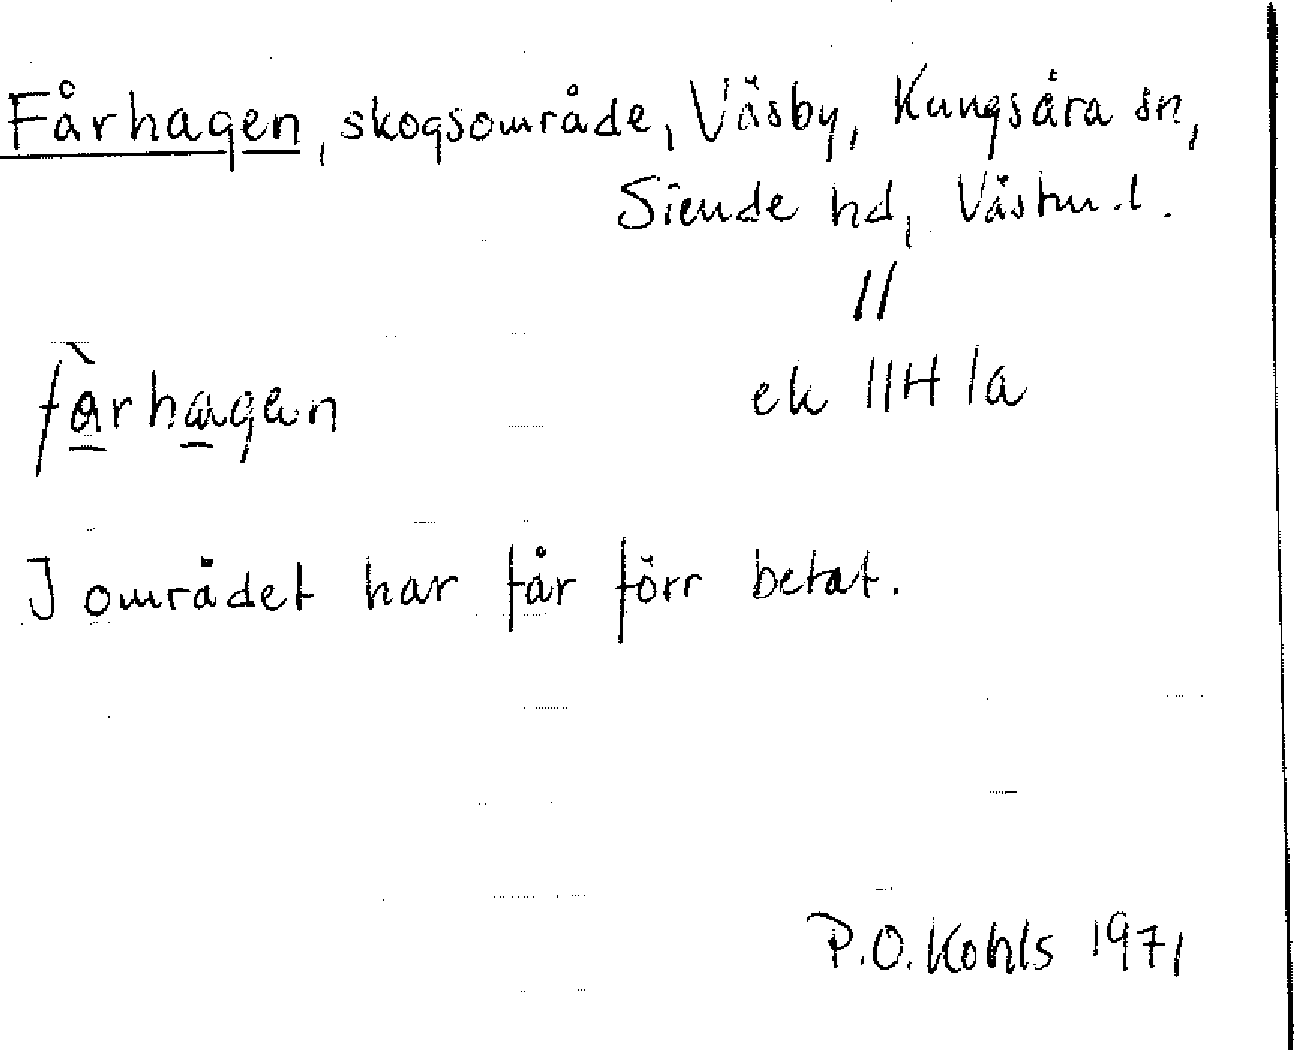 Fårhagen, skogsområde, Väsby, Kungsåra sn,
Siende hd, Västm.l.
//
fàrhagen
ek 11H 1a
I området har får förr betat.
P.O. Kohls 1971